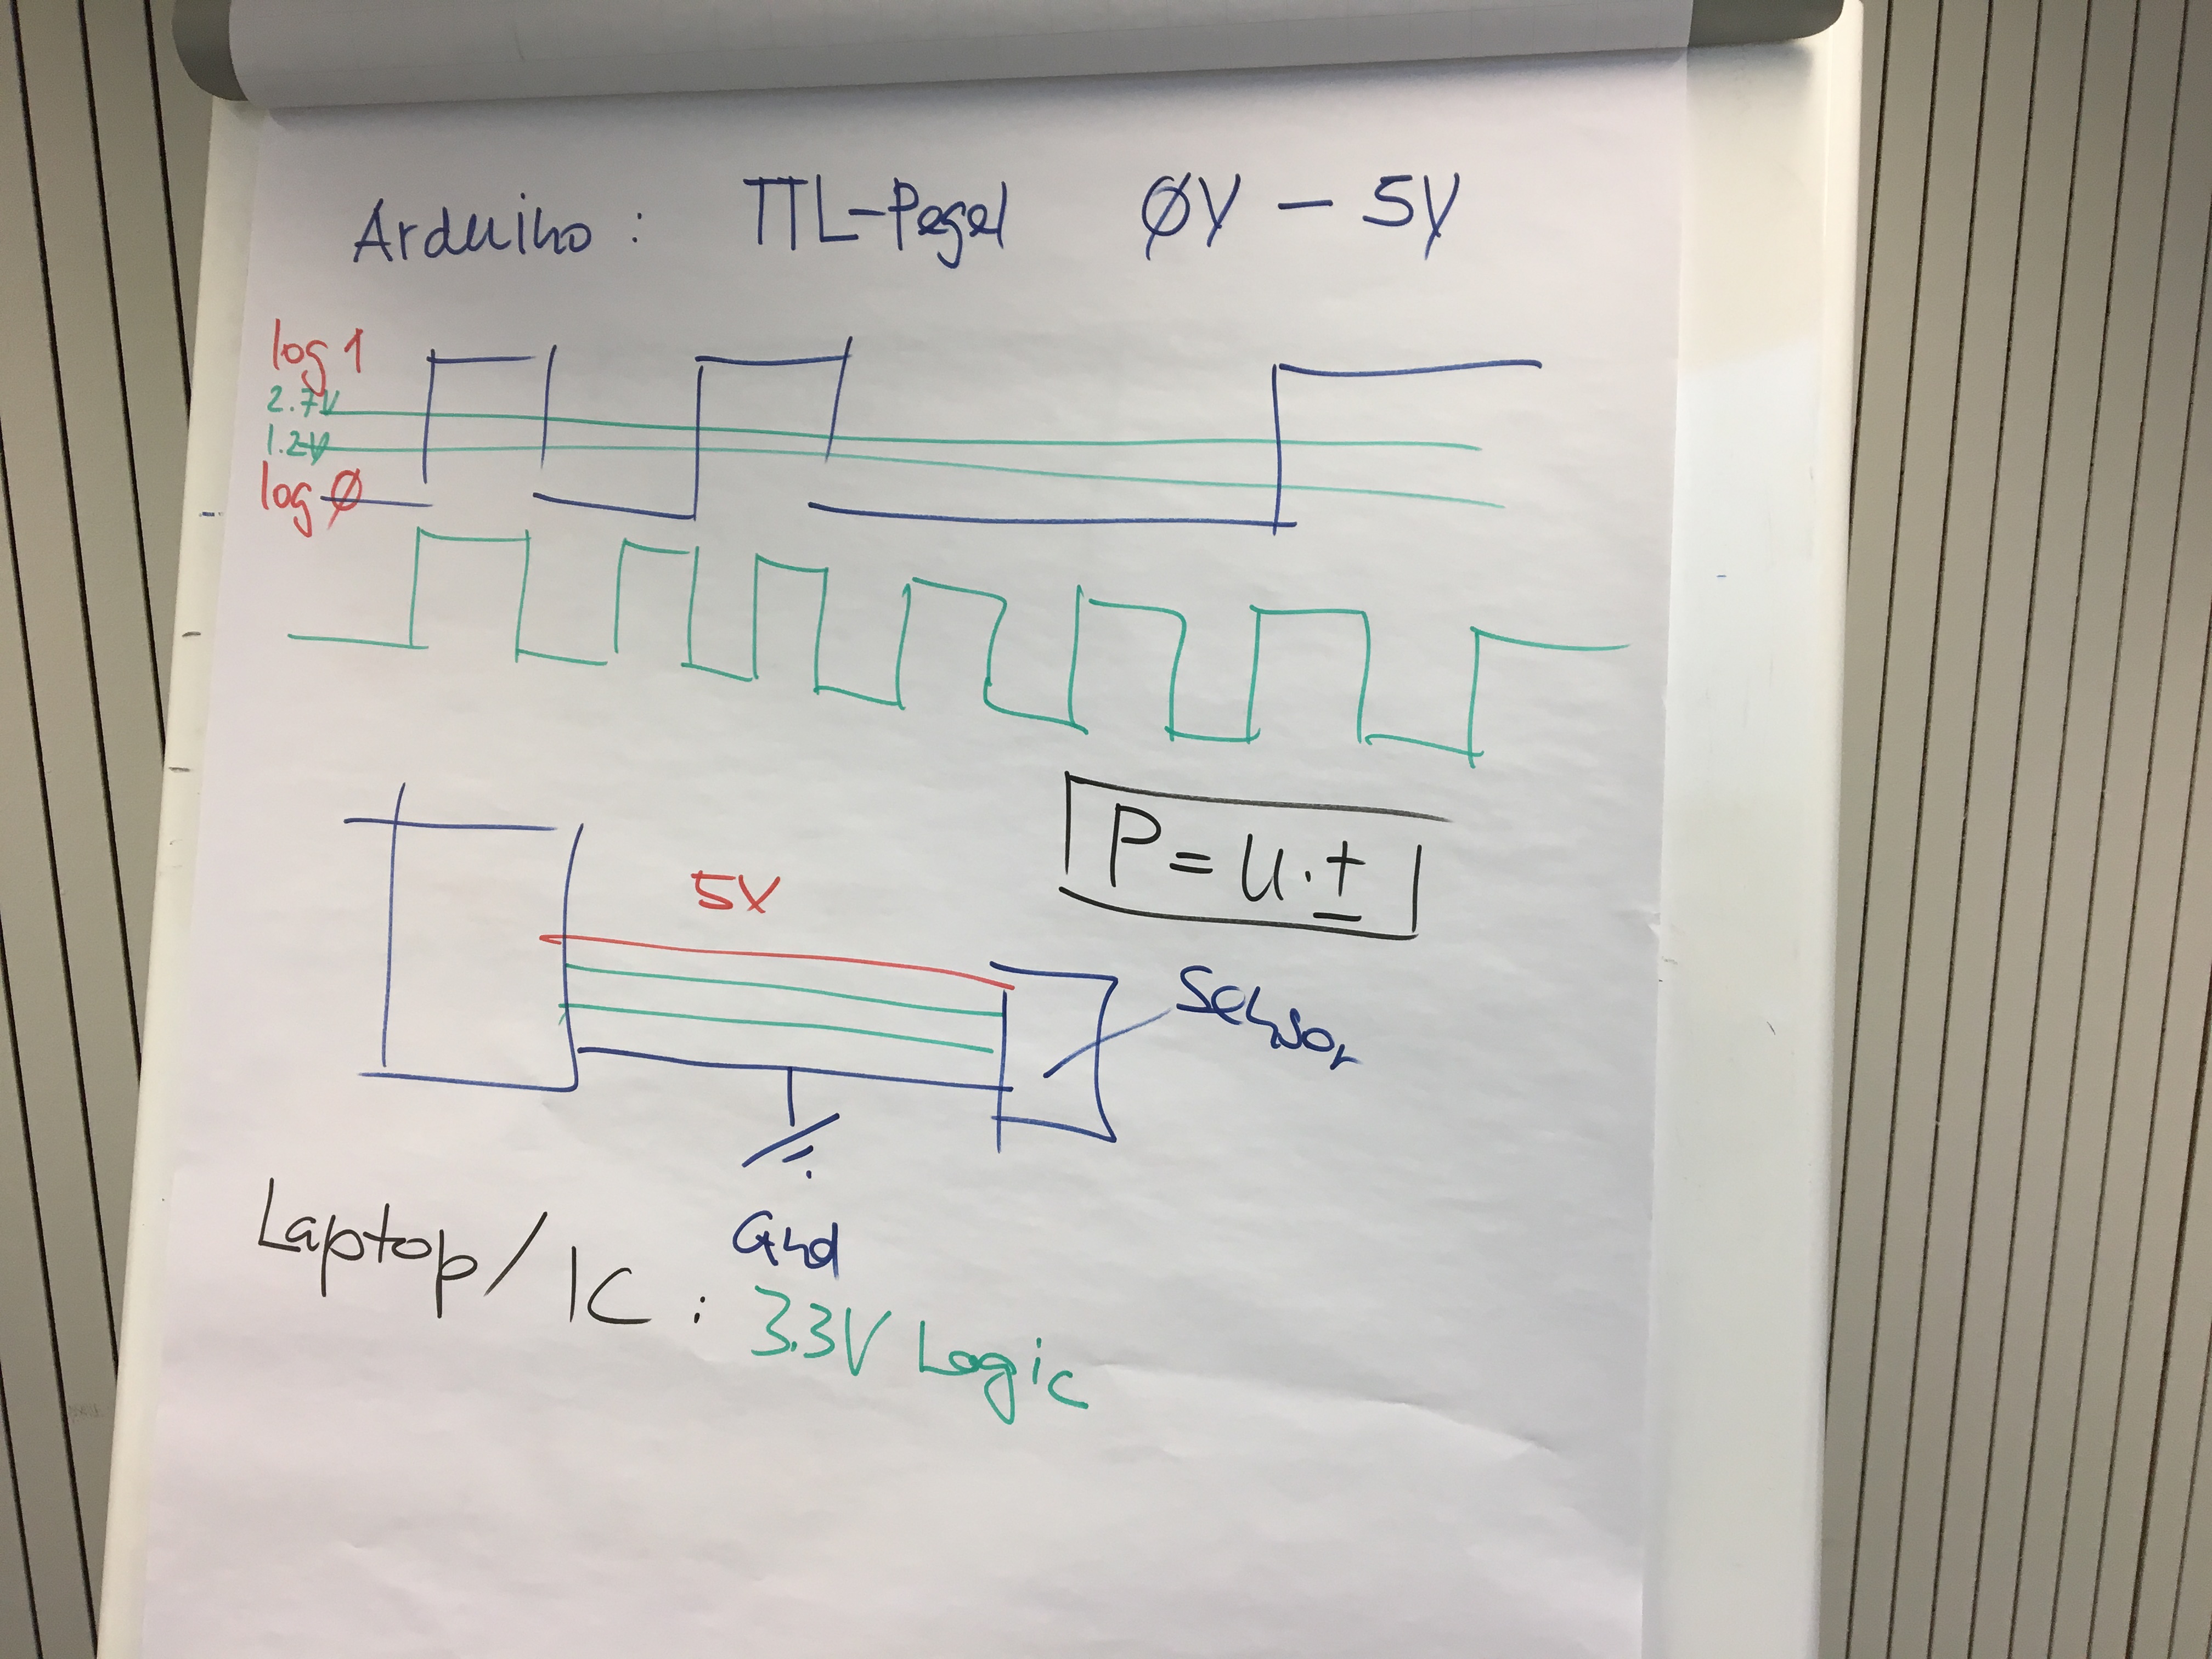 Arduino : TTL-Pegel 0V - 5V
log 1
2.7V
1.2V
log 0
P = U · I
5V
Sensor
Gnd
Laptop / IC : 3.3V Logic